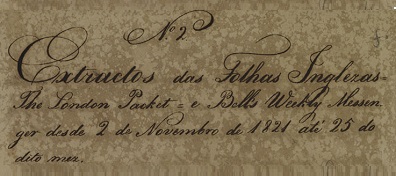 N.º 2
Extractos das Folhas Inglezas=
The London Packet = e Bell's Weekly Messen
ger desde 2 de Novembro de 1821 até 25 do
dito mez.